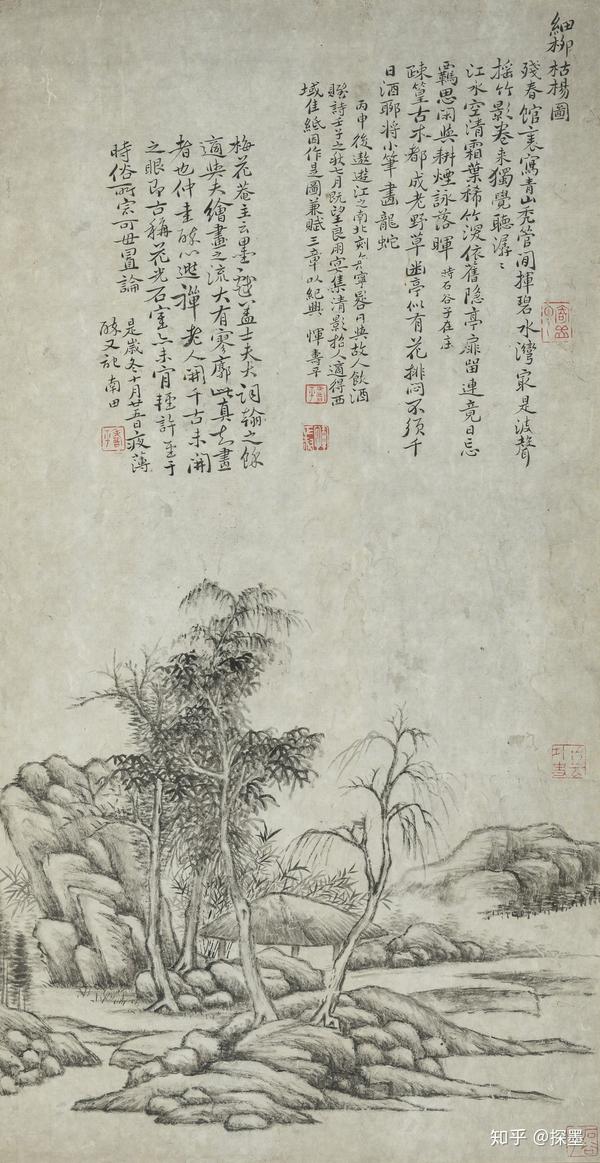 細柳枯楊圖
殘春館裏寫青山禿管閒揮碧水灣寂是波聲
搖竹影卷來獨覺聽潺〻
江水空清霜葉稀竹深依舊隐亭扉留連竟日忘
羈思閑與耕煙詠落暉 時石谷子在主
疎篁古木都成老野草幽亭似有花排悶不須千
日酒聊將小筆畫龍蛇
丙申後遨遊江之南北刻無寧晷日與故人飲酒
賦詩壬子之秋七月既望良雨宴集清影拾人適得西
域佳紙因作是圖兼賦三章以紀興 惲壽平
梅花菴主云墨戲蓋士夫詞翰之餘
適與夫繪畫之流大有寥廓此真知畫
者也仲圭酷心逃禪老人開千古未開
之眼即古稱花光石室亦未肯輕許至于
時俗所宗可毋置論
是歲冬十月廿五日夜薄
醉又記 南田
知乎 @探墨